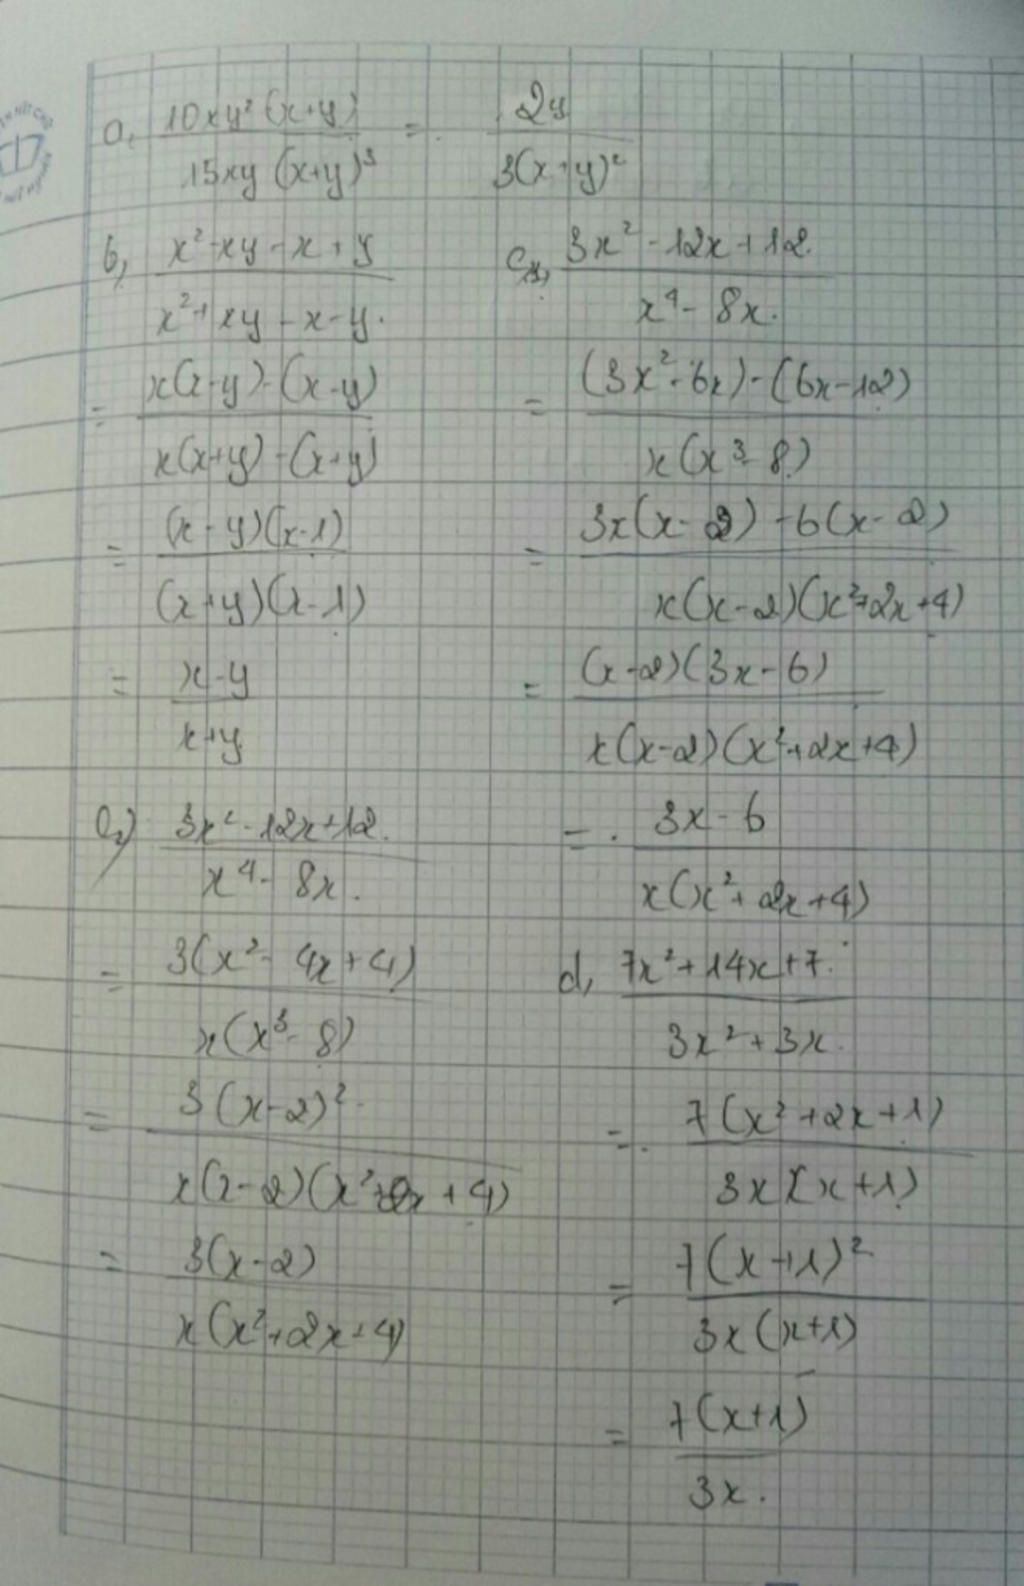 a, 10xy²(x+y) / 15xy(x+y)³ = 2y / 3(x+y)²
b, x²-xy-x+y / x²+xy-x-y.
= x(x-y)-(x-y) / x(x+y)-(x+y)
= (x-y)(x-1) / (x+y)(x-1)
= x-y / x+y
c, 3x²-12x+12. / x⁴-8x.
= (3x²-6x)-(6x-12) / x(x³-8)
= 3x(x-2)-6(x-2) / x(x-2)(x²+2x+4)
= (x-2)(3x-6) / x(x-2)(x²+2x+4)
= 3x-6 / x(x²+2x+4)
c,) 3x²-12x+12. / x⁴-8x.
= 3(x²-4x+4) / x(x³-8)
= 3(x-2)² / x(x-2)(x²+2x+4)
= 3(x-2) / x(x²+2x+4)
d, 7x²+14x+7. / 3x²+3x.
= 7(x²+2x+1) / 3x(x+1)
= 7(x+1)² / 3x(x+1)
= 7(x+1) / 3x.